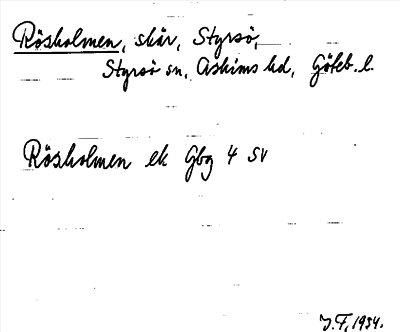 Rösholmen, skär, Styrsö,
Styrsö sn, Askims hd, Göteb. l.
Rösholmen ek Gbg 4 SV
J.F, 1934.